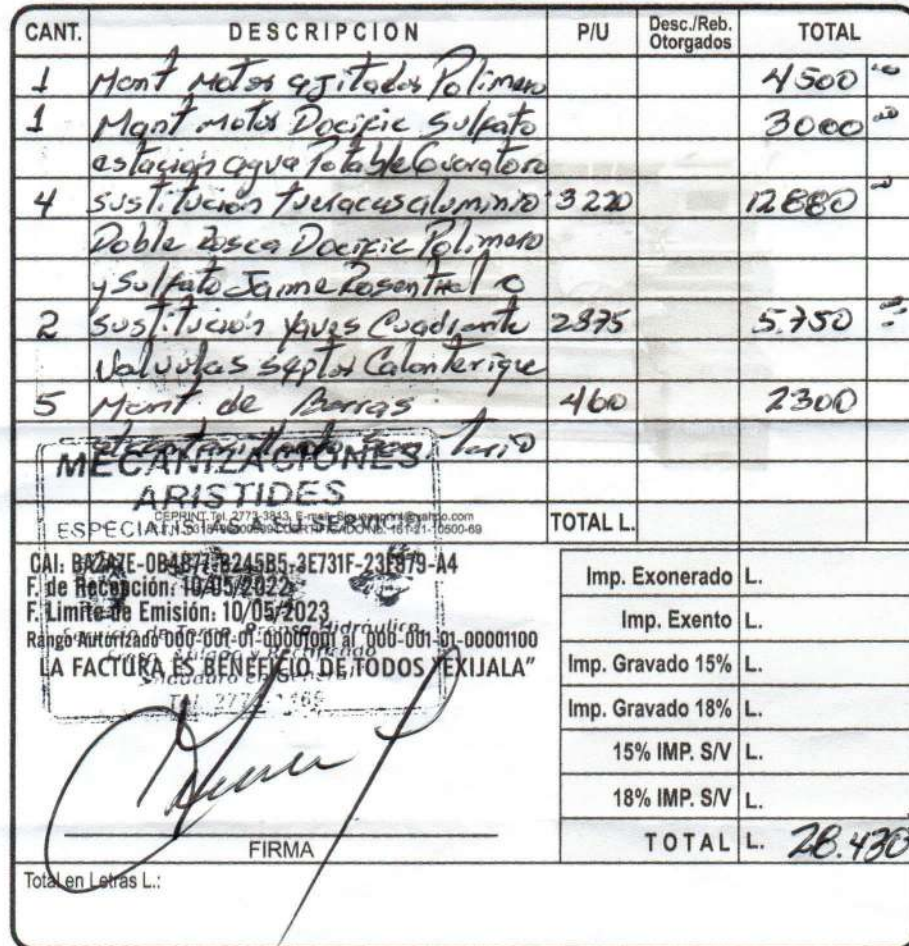 CANT. DESCRIPCION P/U Desc./Reb. Otorgados TOTAL
1 Mant Motor agitador Polimero 4500 00
1 Mant motor Docific Sulfato 3000 00
estacion agua Potable
4 sustitución tuercas aluminio 3220 12880
Doble Rosca Docific Polimero
y Sulfato Jaime Rosenthal o
2 sustitución Cuadrante 2875 5.750
Valvulas Calanterique
5 Mant de Barras 460 2300
MECANIZACIONES
ARISTIDES
ESPECIALISTAS A SU SERVICIO
CEPRINT Tel. 2773-3843, E-mail:
TOTAL L.
CAI: F. de Recepción: 10/05/2022
F. Limite de Emisión: 10/05/2023
Rango Autorizado 000-001-01-00001001 al 000-001-01-00001100
LA FACTURA ES BENEFICIO DE TODOS "EXIJALA"
Imp. Exonerado L.
Imp. Exento L.
Imp. Gravado 15% L.
Imp. Gravado 18% L.
15% IMP. S/V L.
18% IMP. S/V L.
TOTAL L. 28.430
FIRMA
Total en Letras L.: